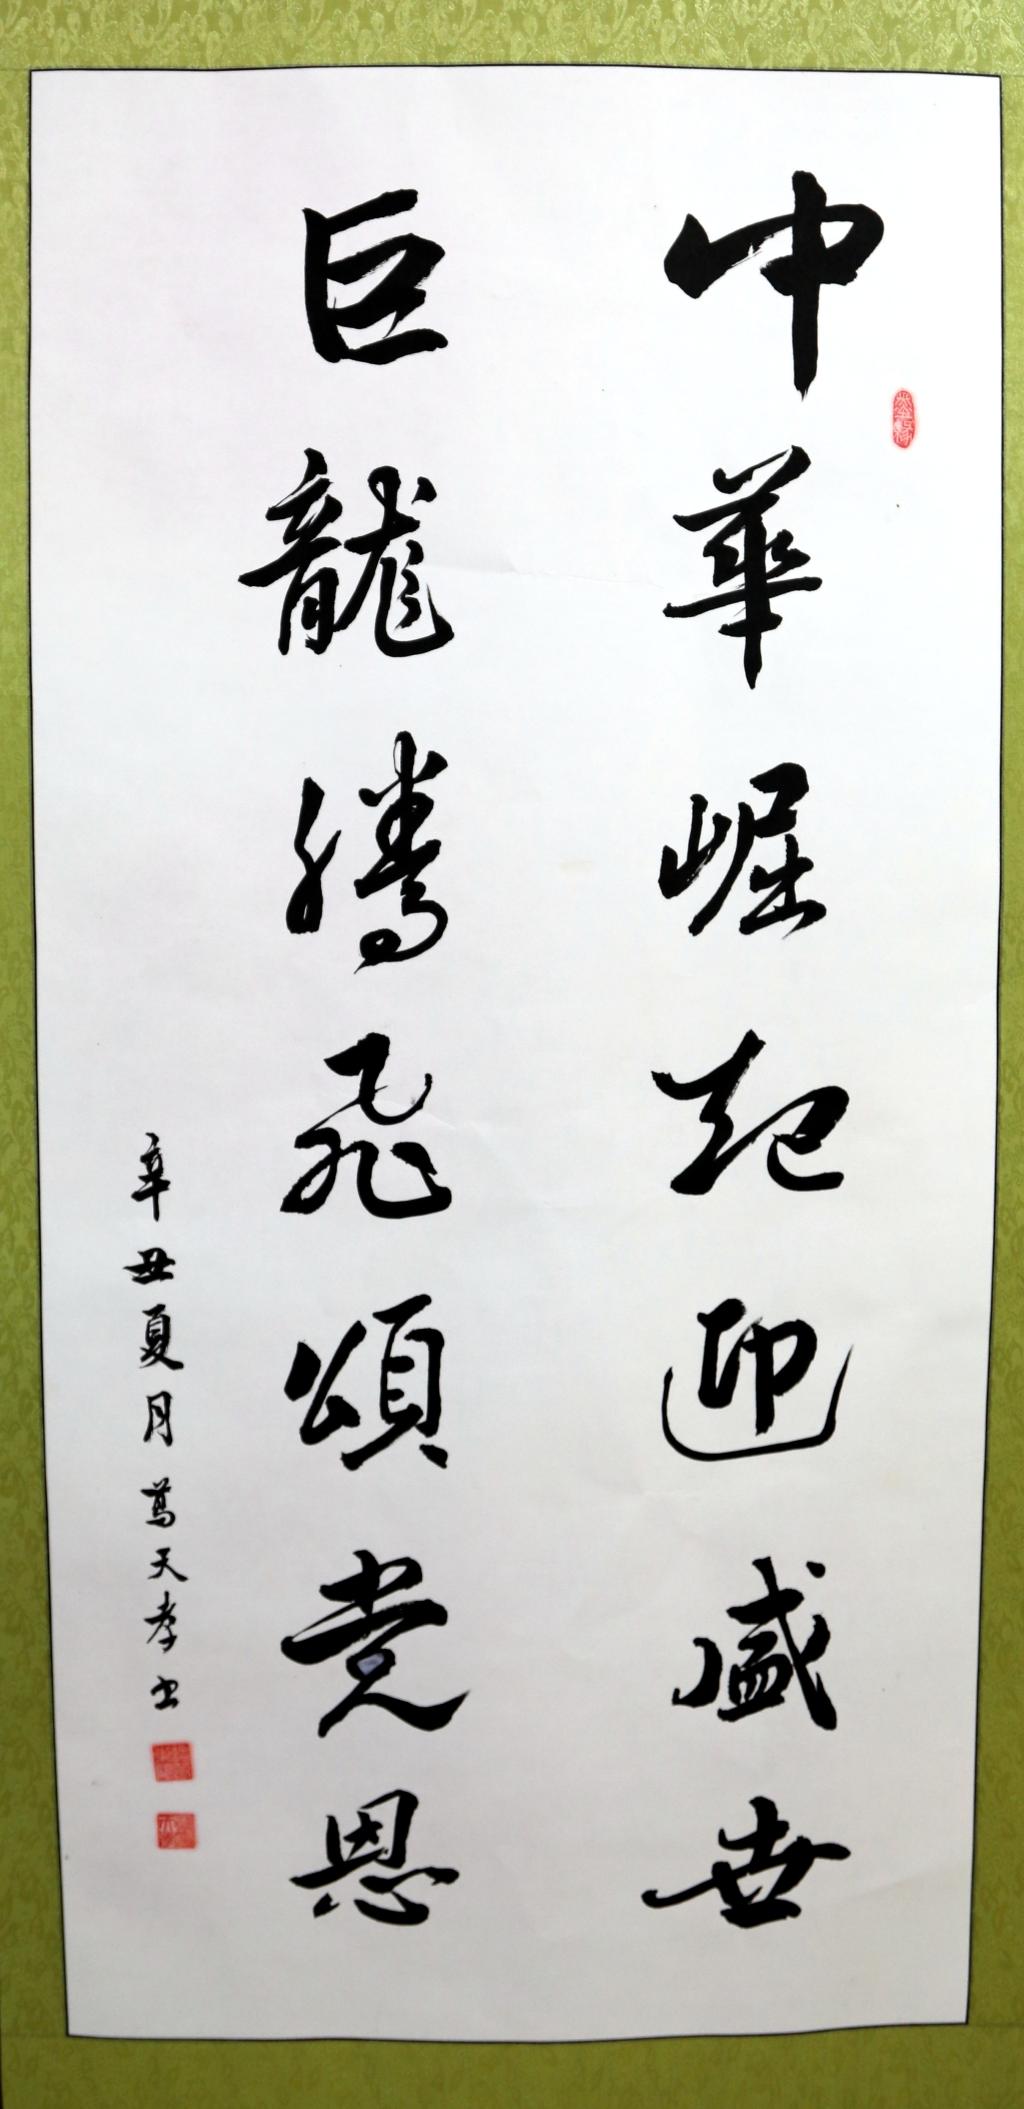 中華崛起迎盛世
巨龍騰飛頌党恩
辛丑夏月葛天孝书